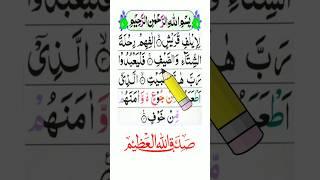 بِسْمِ اللهِ الرَّحْمٰنِ الرَّحِيْمِ
لِاِيْلٰفِ قُرَيْشٍ ۙ اٖلٰفِهِمْ رِحْلَةَ
الشِّتَآءِ وَالصَّيْفِ ۚ فَلْيَعْبُدُوْا
رَبَّ هٰذَا الْبَيْتِ ۙ الَّذِيْٓ
اَطْعَمَهُمْ مِّنْ جُوْعٍ ۙ وَّاٰمَنَهُمْ
مِّنْ خَوْفٍ
صَدَقَ اللهُ الْعَظِيْمُ